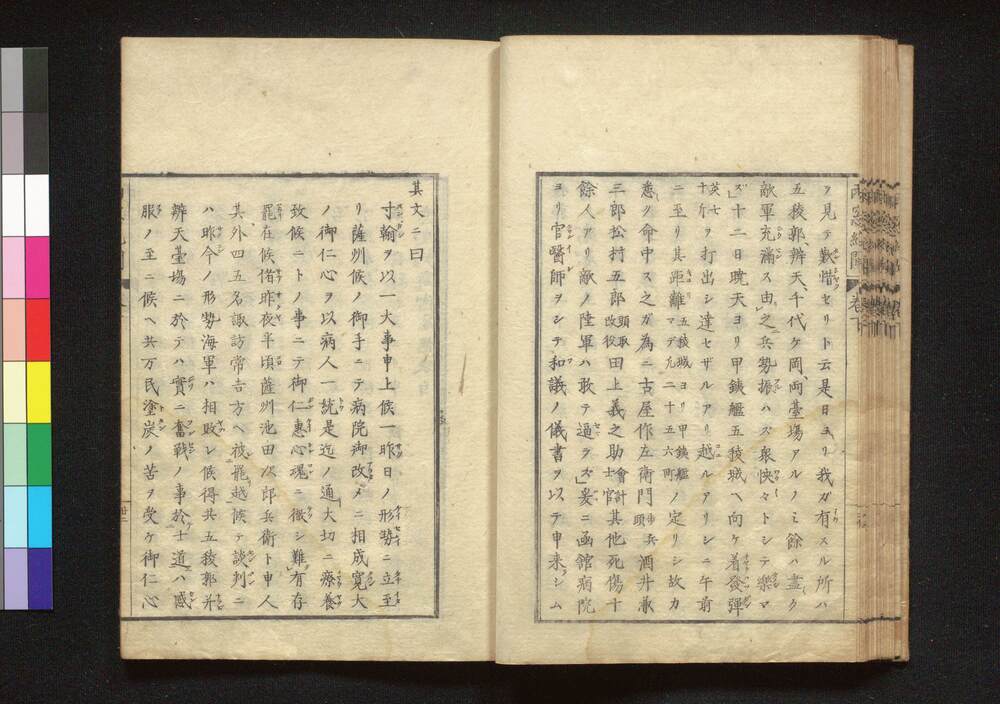 ヲ見テ歎惜セリト云是日ヨリ我ガ有スル所ハ
五稜郭、辨天、千代ケ岡、両臺場アルノミ餘ハ盡ク
敵軍充滿ス由之兵勢振ハズ衆怏々トシテ樂マ
ズ」十二日暁天ヨリ甲銕艦五稜城ヘ向ケ着發彈
英七十斤ヲ打出シ達セザルアリ越ルアリシニ午前
ニ至リ其距離五稜城ヨリ甲銕艦マデ凡二十五六町ノ定リシ故カ
悉ク命中ス之ガ為ニ古屋作左衛門歩兵頭酒井兼
三郎松村五郎頭取改役田上義之助會計士官其他死傷十
餘人アリ敵ノ陸軍ハ敢テ逼ラズ」爰ニ函館病院
ヨリ官醫師ヲシテ和議ノ儀書ヲ以テ申来シム
両恩結間
巻下
其文ニ曰
寸翰ヲ以一大事申上候一昨日ノ形勢ニ立至
リ薩州候ノ御手ニテ病院御改メニ相成寛大
ノ御仁心ヲ以病人一統是迄ノ通大切ニ療養
致候ニトノ事ニテ御仁惠心魂ニ徹シ難有存
罷在候偖昨夜半頃薩州池田次郎兵衛ト申人
其外四五名諏訪常吉方ヘ被罷越候テ談判ニ
ハ昨今ノ形勢海軍ハ相敗レ候得共五稜郭并
辨天臺場ニ於テハ實ニ奮戰ノ事於士道ハ感
服ノ至ニ候ヘ共万民塗炭ノ苦ヲ受ケ御仁心
廿二